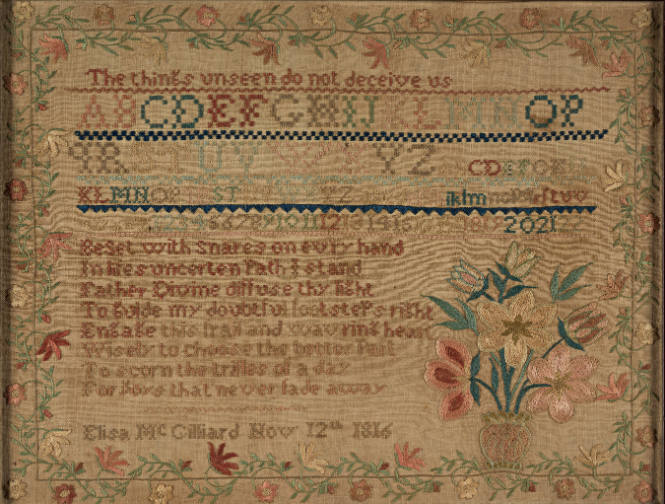 The things unseen do not deceive us
ABCDEFGHIJ KL MN OP
UV YZ CD
KLMN OP ST YZ iklm
1 2 3 4 5 6 7 8 9 10 11 12 13 14 15 2021
Beset with snares on evry hand
In lifes uncerten Path I stand
Father Divine diffuse thy light
To Guide my doubtful footsteps right
Engage this frail and wavring heart
Wisely to choose the better Part
To scorn the trifles of a day
For Joys that never fade away
Elisa Mc Gilliard Nov 12th 1816